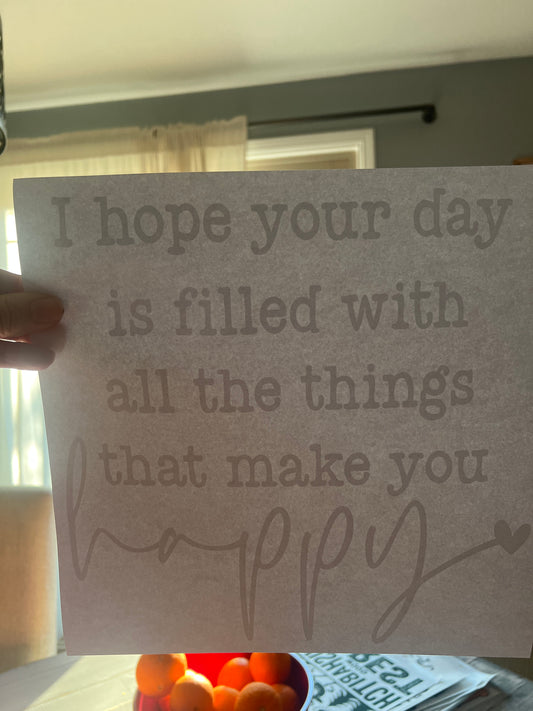 I hope your day
is filled with
all the things
that make you
happy